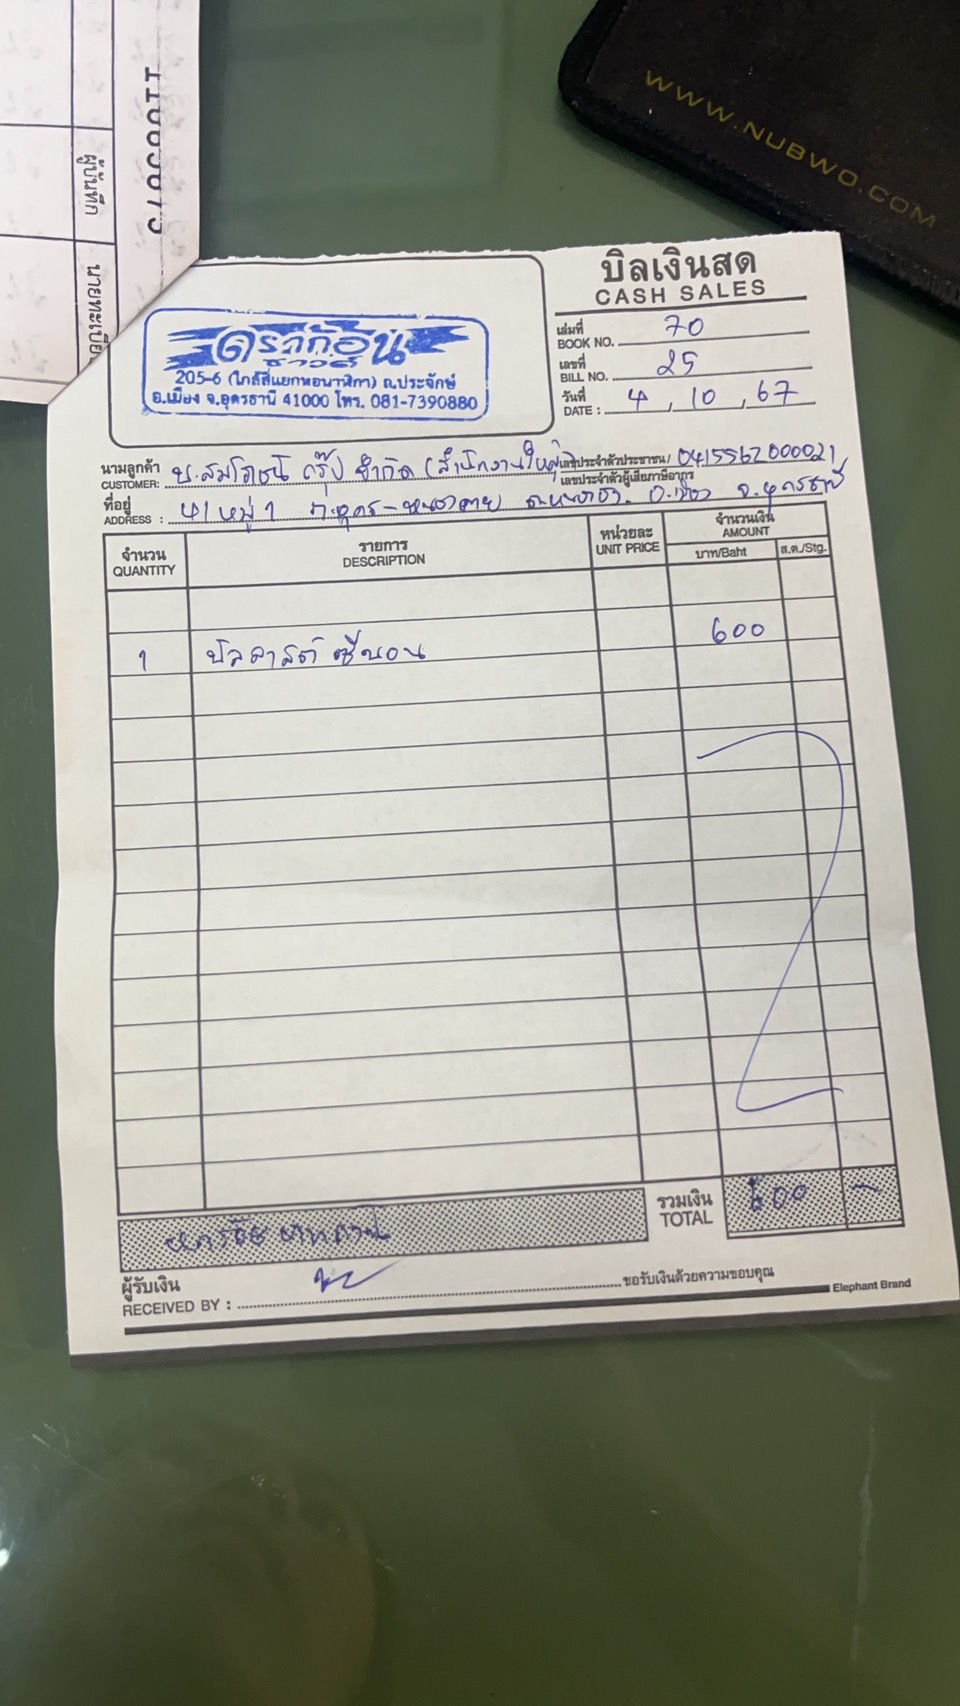 WWW.NUBWO.COM
ผู้บันทึก
นายทะเบียน
บิลเงินสด
CASH SALES
ดราก้อน
ซาวด์
205-6 (ใกล้สี่แยกหอนาฬิกา) ถ.ประจักษ์
อ.เมือง จ.อุดรธานี 41000 โทร. 081-7390880
เล่มที่
BOOK NO. 70
เลขที่
BILL NO. 25
วันที่
DATE : 4, 10, 67
นามลูกค้า
CUSTOMER: บ.สมโภชน์ กรุ๊ป จำกัด (สำนักงานใหญ่)
เลขประจำตัวประชาชน / 0415562000021
เลขประจำตัวผู้เสียภาษีอากร
ที่อยู่
ADDRESS : 41 หมู่ 1 ถ.อุดร-หนองคาย อ.เมือง จ.อุดรธานี
จำนวน รายการ หน่วยละ จำนวนเงิน
QUANTITY DESCRIPTION UNIT PRICE AMOUNT
บาท/Baht ส.ต./Stg.
1 บัลลาสต์ ซีนอน 600
หกร้อยบาทถ้วน
รวมเงิน
TOTAL 600 -
ผู้รับเงิน
RECEIVED BY : ขอรับเงินด้วยความขอบคุณ
Elephant Brand